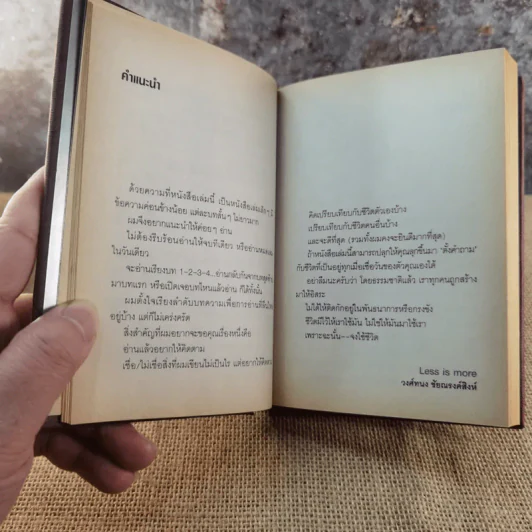 คำแนะนำ
ด้วยความที่หนังสือเล่มนี้ เป็นหนังสือเล่มเล็กๆ มี
ข้อความค่อนข้างน้อย แต่ละบทสั้นๆ ไม่ยาวมาก
ผมจึงอยากแนะนำให้ค่อยๆ อ่าน
ไม่ต้องรีบร้อนอ่านให้จบทีเดียว หรืออ่านหมดเล่ม
ในวันเดียว
จะอ่านเรียงบท 1-2-3-4...อ่านกลับกันจากบทสุดท้าย
มาบทแรก หรือเปิดเจอบทไหนแล้วอ่าน ก็ได้ทั้งนั้น
ผมตั้งใจเรียงลำดับบทความเพื่อการอ่านที่ลื่นไหล
อยู่บ้าง แต่ก็ไม่เคร่งครัด
สิ่งสำคัญที่ผมอยากจะขอคุณเรื่องหนึ่งคือ
อ่านแล้วอยากให้คิดตาม
เชื่อ/ไม่เชื่อสิ่งที่ผมเขียนไม่เป็นไร แต่อยากให้คิดตาม
คิดเปรียบเทียบกับชีวิตตัวเองบ้าง
เปรียบเทียบกับชีวิตคนอื่นบ้าง
และจะดีที่สุด (รวมทั้งผมคงจะยินดีมากที่สุด)
ถ้าหนังสือเล่มนี้สามารถปลุกให้คุณลุกขึ้นมา "ตั้งคำถาม"
กับชีวิตที่เป็นอยู่ทุกเมื่อเชื่อวันของตัวคุณเองได้
อย่าลืมนะครับว่า โดยธรรมชาติแล้ว เราทุกคนถูกสร้าง
มาให้อิสระ
ไม่ได้ให้ติดกักอยู่ในพันธนาการหรือกรงขัง
ชีวิตมีไว้ให้เราใช้มัน ไม่ใช่ให้มันมาใช้เรา
เพราะฉะนั้น--จงใช้ชีวิต
Less is more
วงศ์ทนง ชัยณรงค์สิงห์